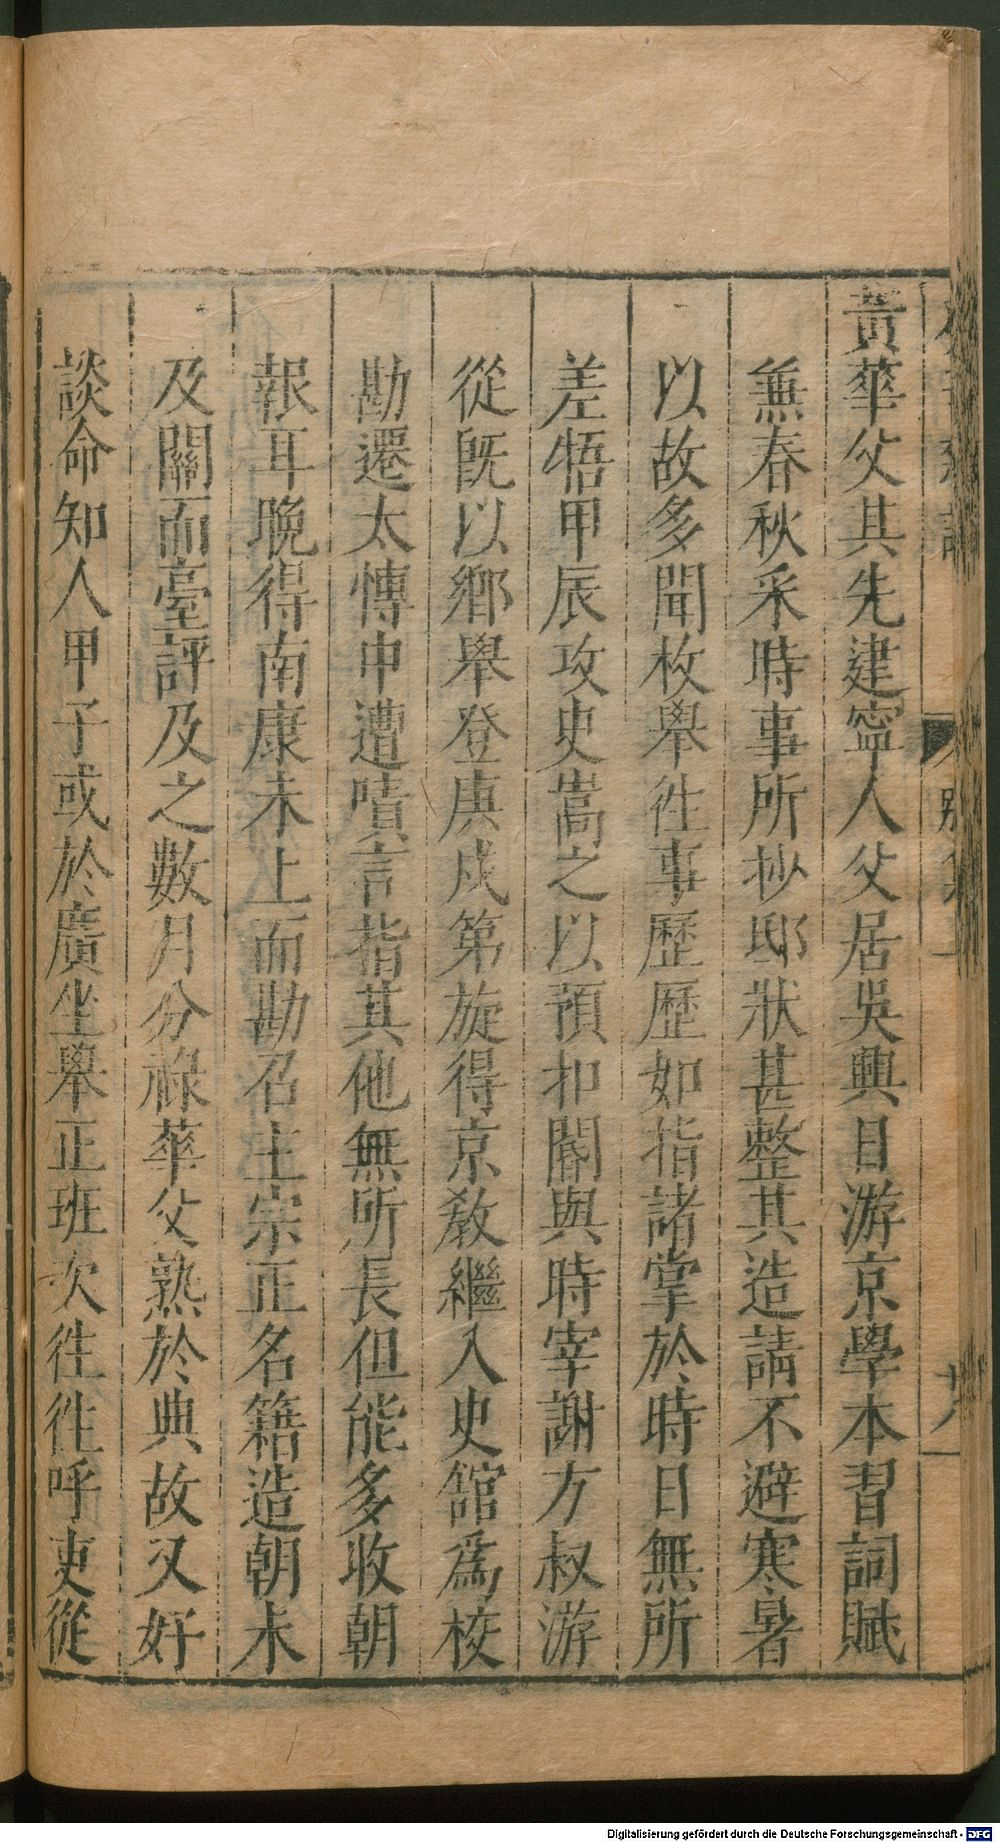 黃華父其先建寧人父居吳興目游京學本習詞賦
無春秋采時事所抄邸狀甚整其造請不避寒暑
以故多聞枚舉往事歷歷如指諸掌於時日無所
差牾甲辰攻史嵩之以預扣閽與時宰謝方叔游
從既以鄉舉登庚戌第旋得京教繼入史館爲校
勘遷太慱中遭嘖言指其他無所長但能多收朝
報耳晚得南康未上而勘召主宗正名籍造朝未
及關而臺評及之數月分祿華父熟於典故又好
談命知人甲子或於廣坐舉正班次往往呼吏從
别集
廿八
Digitalisierung gefördert durch die Deutsche Forschungsgemeinschaft - DFG